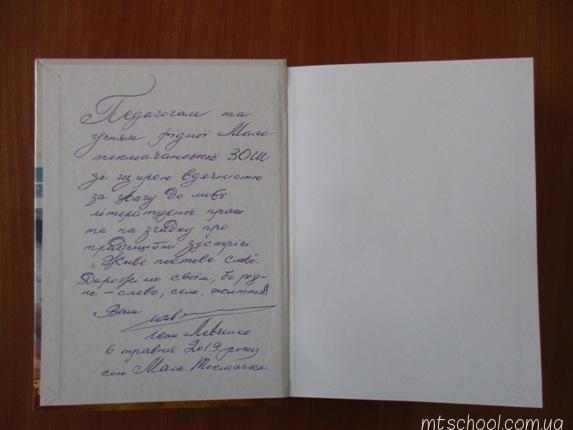 Педагогам та
учням рідної Мало-
токмачанської ЗОШ
зі щирою вдячністю
за увагу до моєї
літературної праці
та на згадку про
традиційні зустрічі
„Живе поетове слово".
Дорожімо своїм, бо рід-
не – слово, село, життя!
Ваш
Іван Левченко
6 травня 2019 року
село Мала Токмачка
mtschool.com.ua